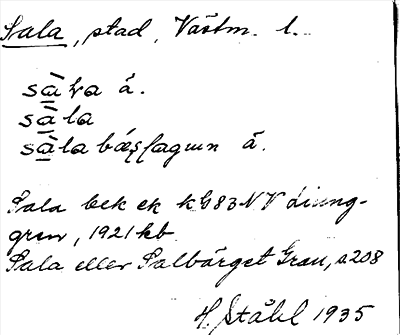 Sala, stad, Västm. l.
sàla å.
sàla
sàla bærgagun å.
Sala bek ek kG83NV Ljung-
gren, 1921 kb
Sala eller Salbärget Grau, s208
H. Ståhl 1935